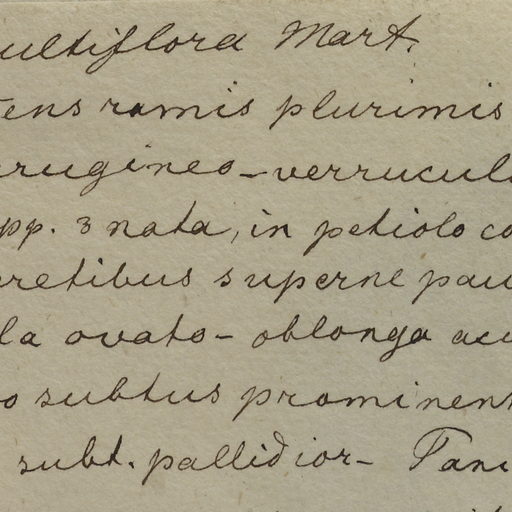 ultiflora Mart.
tens ramis plurimis
rugineo-verrucul
pp. 3 nata, in petiolo co
retibus superne pau
la ovato-oblonga acu
o subtus prominent
subt. pallidior- Pani